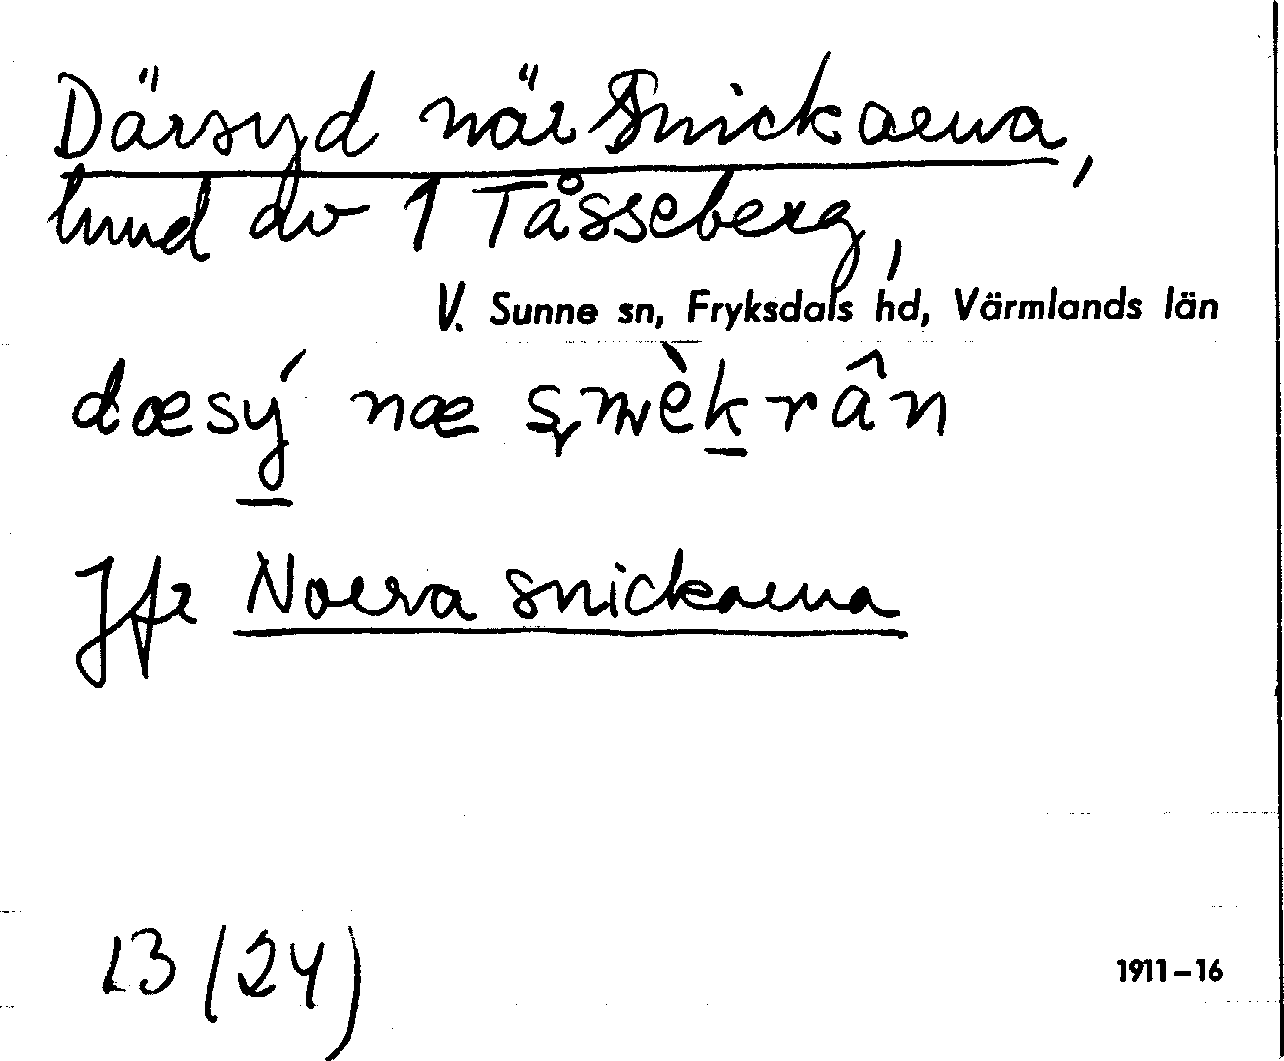 Därsyd när Snickarna,
hmd av 1 Tåsseberg,
V. Sunne sn, Fryksdals hd, Värmlands län
dæsý næ snèkrân
Jfr Norra snickarna
13 (24)
1911–16